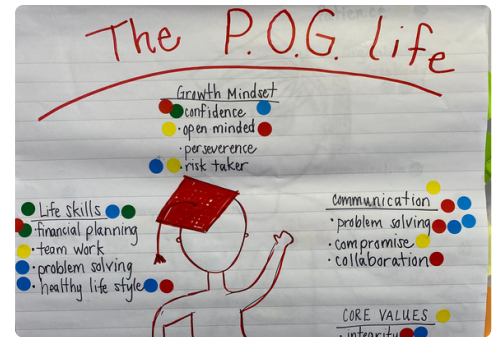 The P.O.G. life
Growth Mindset
confidence
· open minded
· perseverence
· risk taker
Life skills
financial planning
· team work
· problem solving
· healthy life style
communication
· problem solving
· compromise
· collaboration
CORE VALUES
· integrity